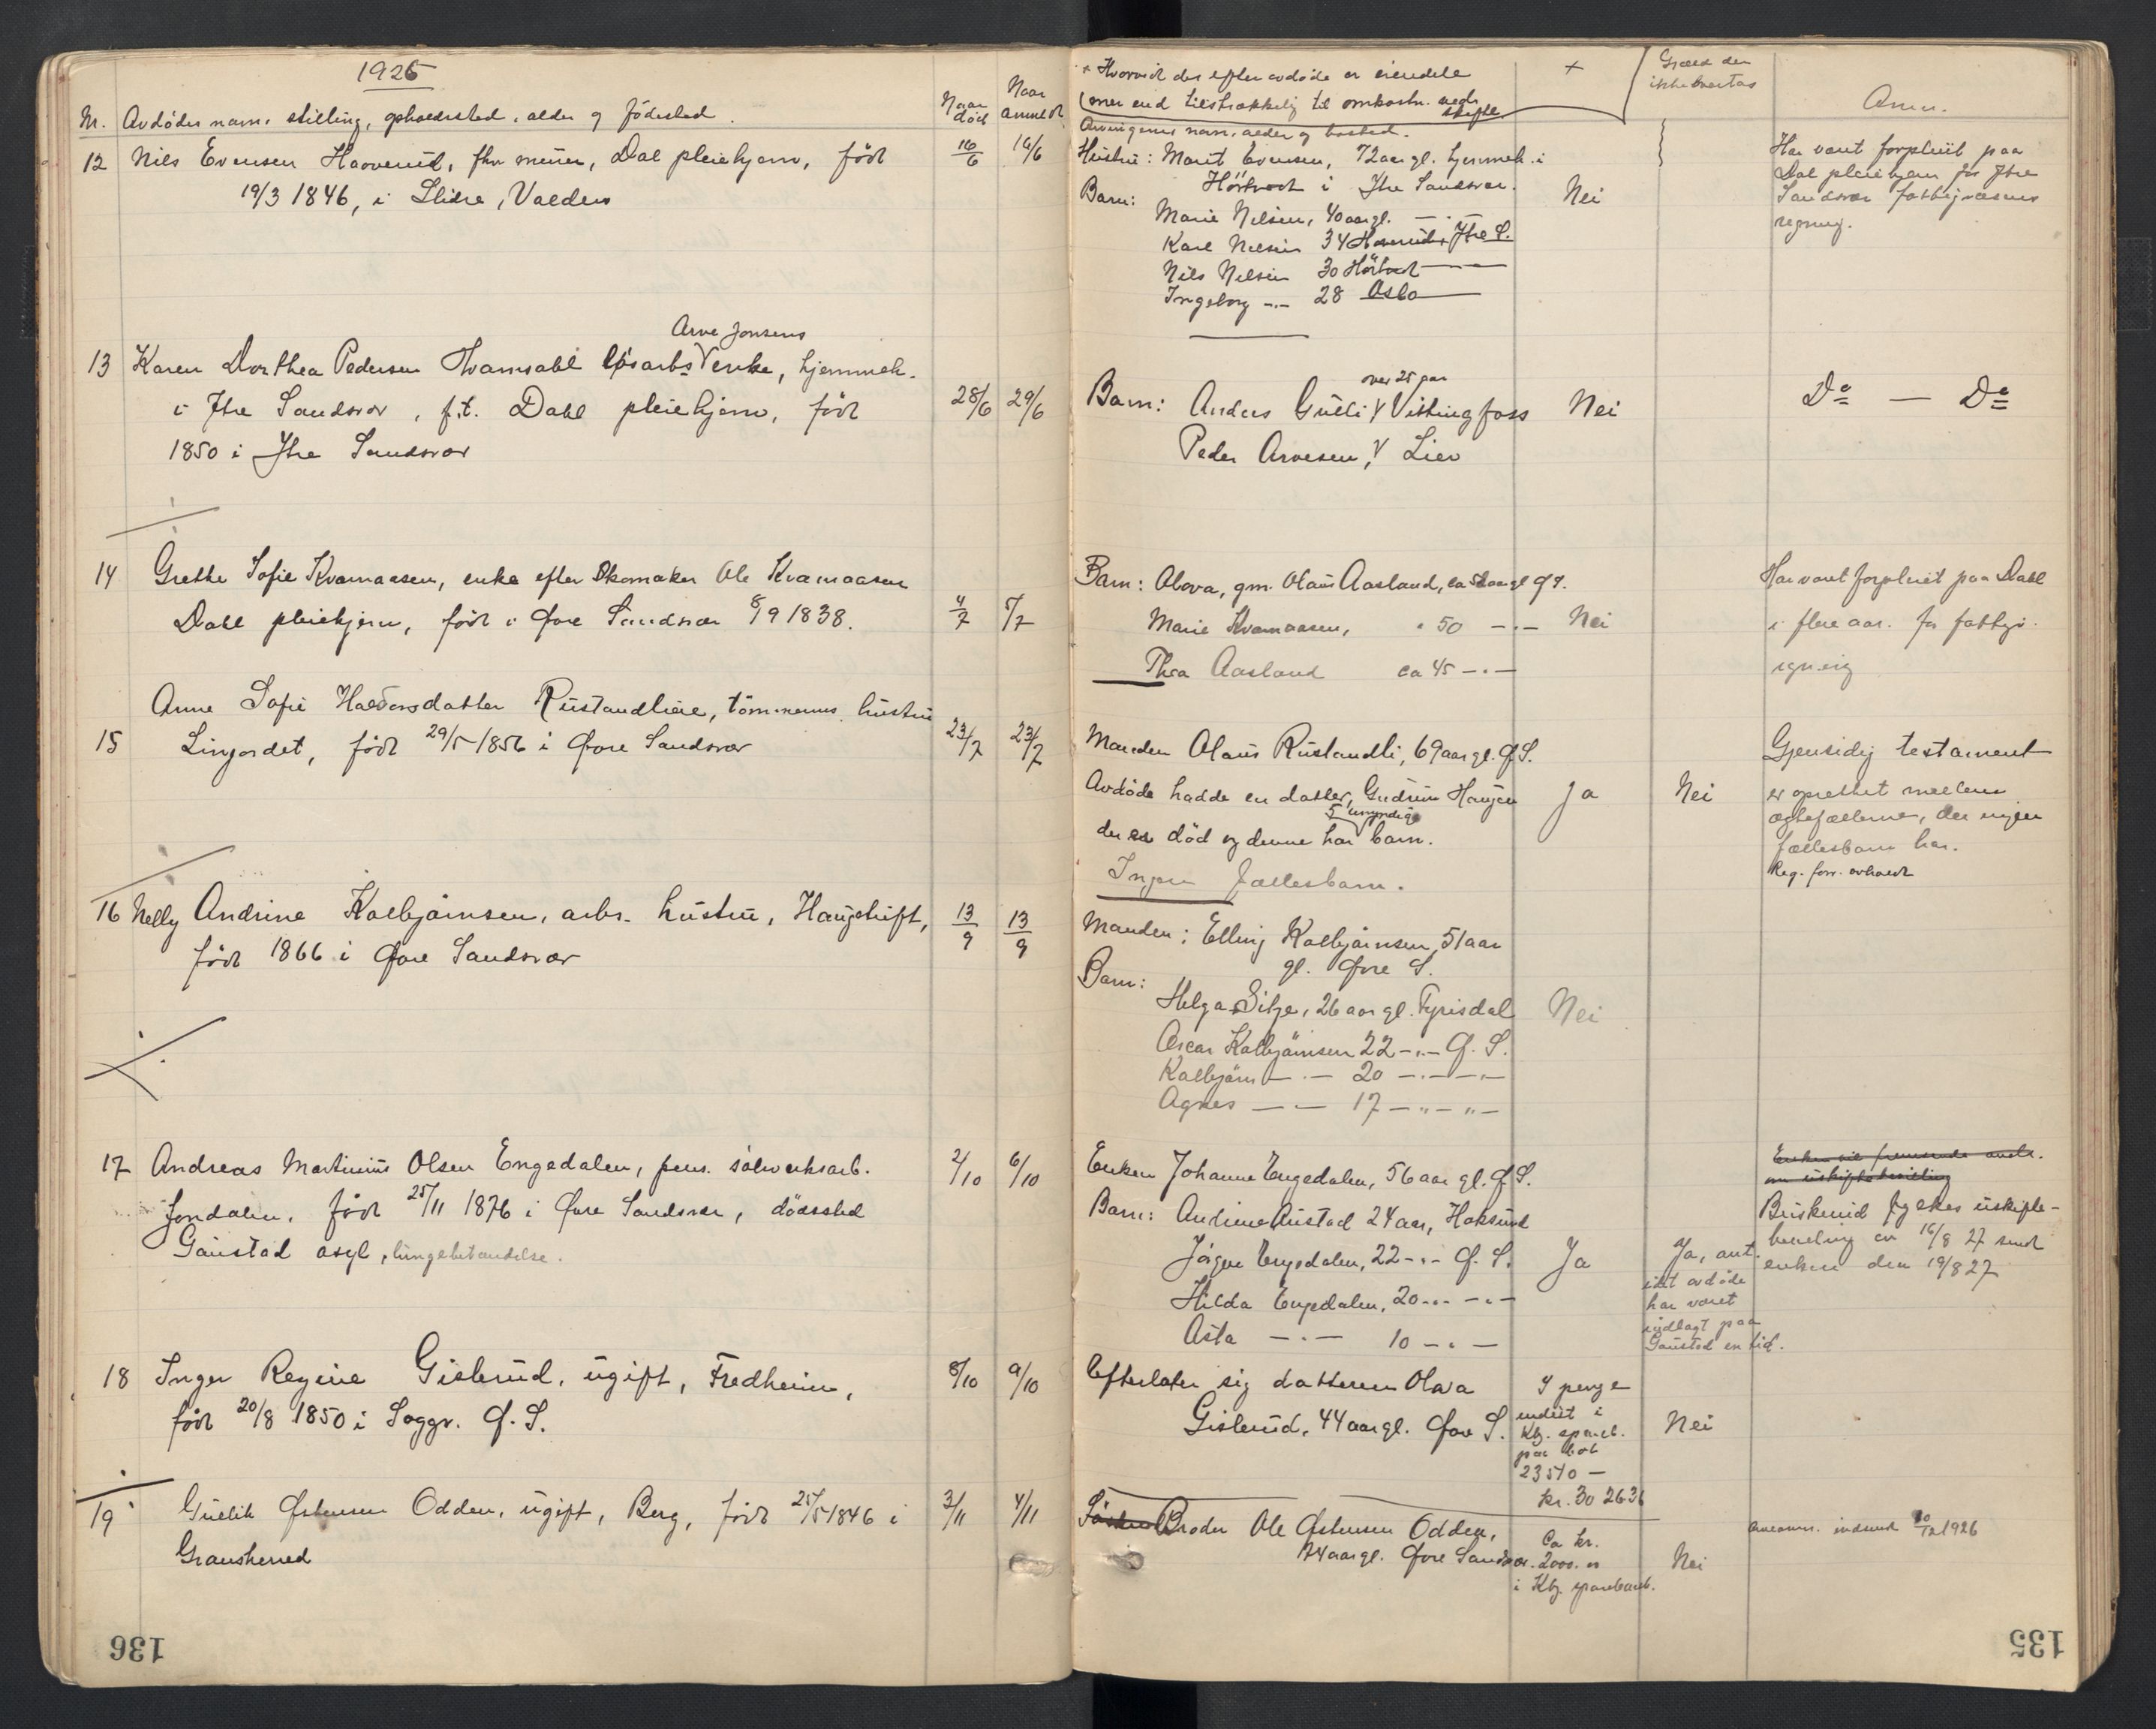 1926
Nr. Avdödes navn, stilling, opholdssted, alder og födested.
Naar död
Naar anmeldt
12 Nils Evensen Haaverud, fhv. minør, Dal pleiehjem, født
19/3 1846, i Slidre, Valdres
16/6 16/6
Arve Jonsens
13 Karen Dorthea Pedersen Kvamsahl løsarb. V enke, hjemmeh.
i Ytre Sandsvær, f.t. Dahl pleiehjem, födt
1850 i Ytre Sandsvær
28/6 29/6
14 Grethe Sofie Kvamaasen, enke efter Skomaker Ole Kvamaasen
Dahl pleiehjem, född i Øvre Sandsvær 8/9 1838.
4/7 5/7
Anne Sofie Haldorsdatter Rustandlie, tømmerm. hustru
15 Lingjordet, född 29/5-1856 i Øvre Sandsvær
23/7 23/7
16 Nelly Andrine Kolbjørnsen, arbs. hustru, Haugstuft,
född 1866 i Øvre Sandsvær
13/9 13/9
17 Andreas Martinius Olsen Engedalen, pens. sølverksarb.
Jondalen. född 25/11 1876 i Øvre Sandsvær, dödssted
Gaustad asyl, lungebetændelse.
2/10 6/10
18 Inger Regine Gislerud, ugift, Fredheim,
född 20/8 1850 i Soggr. Ø. S.
8/10 9/10
19 Gullik Østensen Odden, ugift, Berg, född 25/5 1846 i
Gransherred
3/11 4/11
136
+ Hvorvidt der efter avdöde er eiendele
mer end tilstrækkelig til omkostn. ved skifte
Arvingenes navn, alder og bosted.
+
Gjæld der ikke overtas
Anm.
Hustru: Marit Evensen, 72 aar gl. hjemmeh. i
Hörtvedt i Ytre Sandsvær.
Barn: Marie Nilsen, 40 aar gl. — " —
Karl Nilsen 34 Haaverud, Ytre S.
Nils Nilsen 30 Hörtvedt — —
Ingeborg — " — 28 Oslo —
Nei
Har vært forpleiet paa
Dal pleiehjem for Ytre
Sandsvær fattigvæsens
regning.
over 25 aar
Barn: Anders Gulli V Vittingfoss
Peder Arvesen, V Lier
Nei
Do — Do
Barn: Olava, gm. Olaus Aasland, ca 52 aar gl Ø S.
Marie Kvamaasen, " 50 — " —
Thea Aasland ca 45 — " —
Nei
Har vært forpleiet paa Dahl
i flere aar for fattigv.
regning
Manden Olaus Rustandli, 69 aar gl. Ø. S.
Avdöde hadde en datter, Gudrun Hansen
5 umyndige
der er död og denne har V barn.
Ingen fællesbarn.
Ja
Nei
Gjensidig testament
er oprettet mellem
ægtefællerne, der ingen
fællesbarn har.
Reg. forr. avholdt
Manden: Elling Kolbjørnsen, 51 aar
gl. Øvre S.
Barn:
Helga Sitje, 26 aar gl. Fyrisdal
Oscar Kolbjørnsen 22 — " — Ø. S.
Kolbjørn — " — 20 — " — " —
Agnes — " — 17 — " — " —
Nei
Enken Johanne Engedalen, 56 aar gl. Ø. S.
Barn: Andrine Rustad 24 aar, Hoksund
Jørgen Engedalen, 22 — " — Ø. S.
Hilda Engedalen, 20 — " — " —
Asta — " — 10 — " —
Ja
Ja, ant.
idet avdöde
har været
indlagt paa
Gaustad en tid.
Buskerud fylkes uskifte-
bevilling av 16/8 27 sendt
enken den 19/8 27
Efterlater sig datteren Olava
Gislerud, 44 aar gl. Øvre S.
I penge
indsat i
Kbg. spareb.
paa bok
23510 —
kr. 30 26 36
Nei
Broder Ole Østensen Odden,
74 aar gl. Øvre Sandsvær.
Ca kr.
2000. —
i Kbg. sparebank.
Nei
indsendt 10/12 1926
135